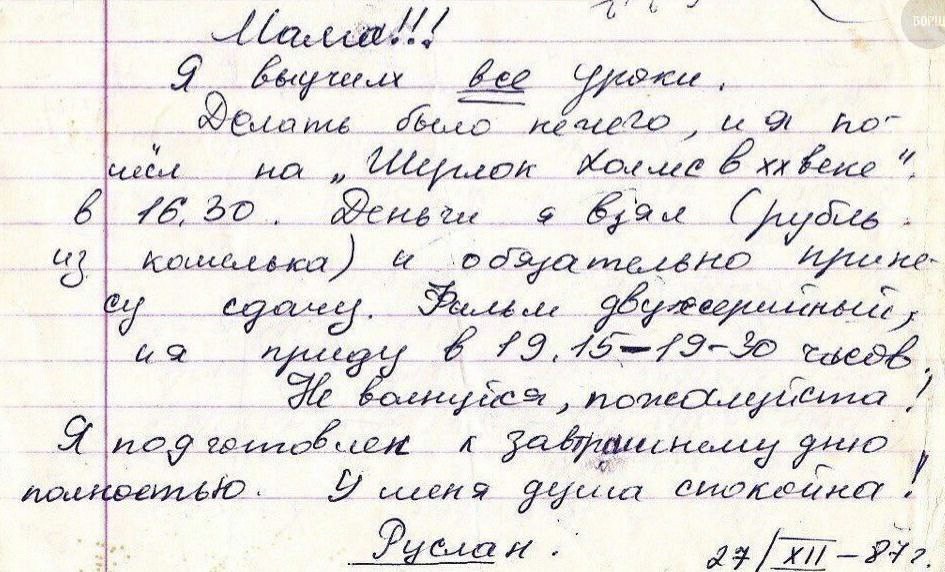 Мама!!!
Я выучил все уроки.
Делать было нечего, и я по-
шёл на „Шерлок Холмс в XX веке".
в 16.30. Деньги я взял (рубль
из кошелька) и обязательно прине-
су сдачу. Фильм двухсерийный,
и я приду в 19.15-19-30 часов.
Не волнуйся, пожалуйста!
Я подготовлен к завтрашнему дню
полностью. У меня душа спокойна!
Руслан.
27/XII-87 г.